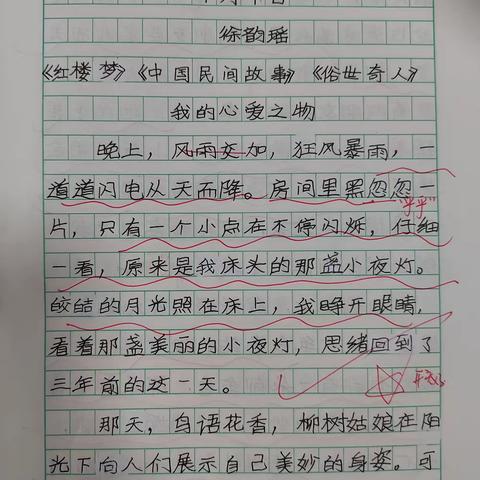 徐韵瑶
《红楼梦》《中国民间故事》《俗世奇人》
我的心爱之物
晚上，风雨交加，狂风暴雨，一
道道闪电从天而降。房间里黑忽忽一
"乎乎"
片，只有一个小点在不停闪烁，仔细
一看，原来是我床头的那盏小夜灯。
皎洁的月光照在床上，我睁开眼睛，
看着那盏美丽的小夜灯，思绪回到了
三年前的这一天。
那天，鸟语花香，柳树姑娘在阳
光下向人们展示自己美妙的身姿。可